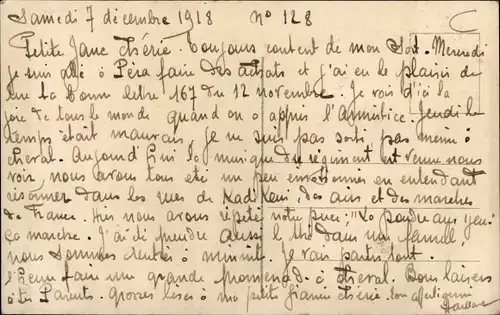 Samedi 7 décembre 1918 N° 128
Petite Jane chérie. Toujours content de mon sort. Mercredi
je suis allé à Péra faire des achats et j'ai eu le plaisir de
lire ta bonne lettre 167 du 12 novembre. Je vois d'ici la
joie de tout le monde quand on a appris l'Armistice. Jeudi le
temps était mauvais, je ne suis pas sorti pas même à
cheval. Aujourd'hui la musique du régiment est venue nous
voir, nous avons tous été un peu émotionnés en entendant
résonner dans les rues de Kadikeui, des airs et des marches
de France. Hier nous avons répété notre pièce; "La poudre aux yeux"
ça marche. J'ai dû prendre aussi le thé dans une famille,
nous sommes rentrés à minuit. Je vais partir tout
l'heure faire une grande promenade à cheval. Bons baisers
à tes Parents. Grosses bises à ma petite fiancée chérie. Ton affectionné